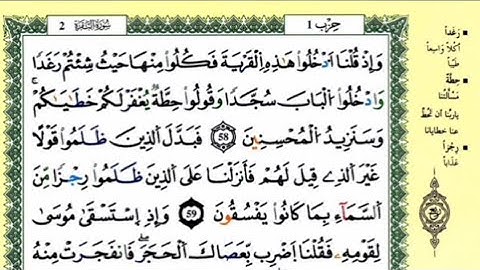 حِزْب 1
سُورَةُ البَقَرَةِ 2
وَإِذْ قُلْنَا اَدْخُلُواْ هَٰذِهِ اِلْقَرْيَةَ فَكُلُواْ مِنْهَا حَيْثُ شِئْتُمْ رَغَداً
وَادْخُلُواْ الْبَابَ سُجَّداً وَقُولُواْ حِطَّةٌ يُغْفَرْ لَكُمْ خَطَٰيَٰكُمْ
وَسَنَزِيدُ الْمُحْسِنِينَ 58 فَبَدَّلَ الَّذِينَ ظَلَمُواْ قَوْلاً
غَيْرَ الَّذِي قِيلَ لَهُمْ فَأَنزَلْنَا عَلَى الَّذِينَ ظَلَمُواْ رِجْزاً مِّنَ
السَّمَآءِ بِمَا كَانُواْ يَفْسُقُونَ 59 وَإِذِ اِسْتَسْقَىٰ مُوسَىٰ
لِقَوْمِهِ فَقُلْنَا اَضْرِب بِّعَصَاكَ الْحَجَرَ فَانفَجَرَتْ مِنْهُ
رَغَداً
أكلاً واسعاً
طيباً
حِطَّةٌ
مسألتنا
ياربنا أن تحط
عنا خطايانا
رِجْزاً
عذاباً